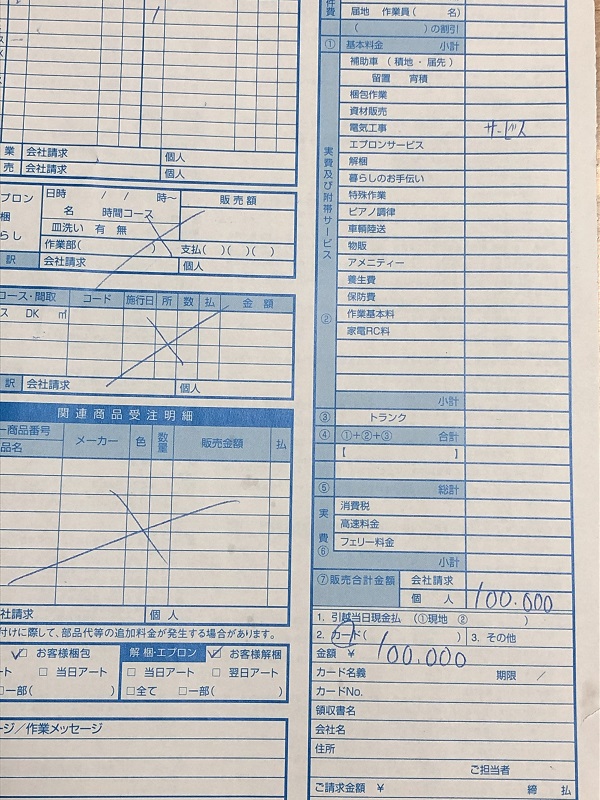 件費
届地 作業員( 名)
( )の割引
① 基本料金 小計
実費及び附帯サービス
②
補助車(積地・届先)
留置 宵積
梱包作業
資材販売
電気工事 サービス
エプロンサービス
解梱
暮らしのお手伝い
特殊作業
ピアノ調律
車輌陸送
物販
アメニティー
養生費
保防費
作業基本料
家電RC料
小計
③ トランク
④ ①+②+③ 合計
【 】
⑤ 総計
実費
⑥
消費税
高速料金
フェリー料金
小計
⑦販売合計金額 会社請求
個人 100.000
1. 引越当日現金払 (①現地 ② )
2. カード( ) 3. その他
金額 ¥ 100.000
カード名義 期限 /
カードNo.
領収書名
会社名
住所
ご担当者
ご請求金額 ¥ 締 払
業 会社請求 個人
売 会社請求 個人
プロン
梱
らし
日時 / / 時〜 販売額
名 時間コース
皿洗い 有 無
作業部( ) 支払( )( )( )
訳 会社請求 個人
コース・間取 コード 施行日 所 数 払 金額
ス DK ㎡
訳 会社請求 個人
関連商品受注明細
ー商品番号
品名 メーカー 色 数量 販売金額 払
社請求 個人
付けに際して、部品代等の追加料金が発生する場合があります。
お客様梱包 解梱・エプロン お客様解梱
ート □当日アート □当日アート □翌日アート
□一部( ) □全て □一部( )
ージ/作業メッセージ